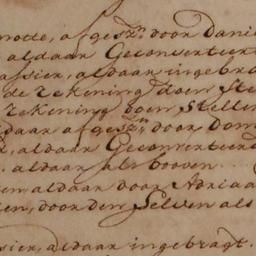 notte, afgesz:n door Danie
aldaar Geconverteer
assier, aldaar ingebra
de Rekening doen Ste
Rekening doen Stellen
daar afgesz:n door Dom
, aldaar Geconverteerd
. aldaar als booven
en aldaar door Adriaa
en, door den Selven als
sier, aldaar ingebragt.